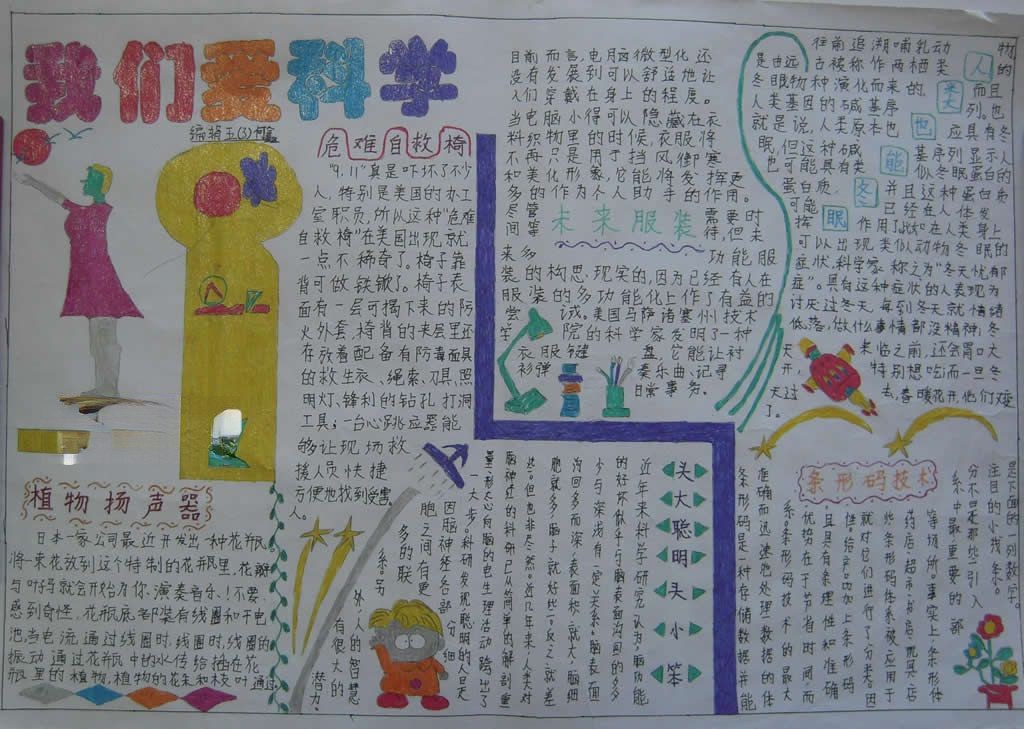 我们爱科学
编辑五(3)
危难自救椅
"9.11"真是吓坏了不少
人,特别是美国的办工
室职员,所以这种"危难
自救椅"在美国出现就
一点不稀奇了。椅子靠
背可做铁锹了。椅子表
面有一层可揭下来的防
火外套,椅背的夹层里还
存放着配备有防毒面具
的救生衣、绳索、刀具,照
明灯、锋利的钻孔打洞
工具;一台心跳应器能
够让现场救
援人员快捷
方便地找到受害
人。
植物扬声器
日本一家公司最近开发出一种花瓶,
将一束花放到这个特制的花瓶里,花瓣
与叶妈就会开始为你、演奏音乐!不要
感到奇怪,花瓶底部架有线圈和干电
池,当电流通过线圈时,线圈时,线圈的
振动通过花瓶中的水传给插在花
瓶里的植物,植物的花朵和枝叶通过
目前而言,电脑微型化还
没有发展到可以舒适地让
人们穿戴在身上的程度。
当电脑小得可以隐藏在衣
料织物里的时候,衣服将
不再只是用于挡风御寒
和美化形象,它能将发挥更
多的作为个人助手的作用。
尽管
间等
未来服装
需要时
待,但未
来多
功能服
装的构思,现实的,因为已经有人在
服装的多功能化上作了有益的
尝试。美国马萨诸塞州技术
学院的科学家发明了一种
衣服键盘,它能让衬
衫弹奏乐曲、记寻
日常事务。
往前追溯哺乳动物
是由远古被称作两栖类人的
冬眼物种演化而来的类而且
人类基因的碱基序列。也
就是说,人类原本也也应具有冬
眠,但这种碱能基序列显示人
也可能具有类似冬眠蛋白的
蛋白质,冬并且这种蛋白质
可能已经在人体发
挥眠作用了,比如在人类身上
可以出现类似动物冬眠的
症状,科学家称之为"冬天忧郁
症"。具有这种症状的人表现为
讨厌过冬天,每到冬天就情绪
低落,做什么事情都没精神;冬
天来临之前,还会胃口大
开,特别想吃;而一旦冬
天过去,春暖花开,他们又
了。
头大聪明头小笨
近年来科学研究认为,脑功能
的好坏似乎与脑表面沟回的多
少与深浅有一定关系。脑表面
沟回多而深,表面积就大,脑细
胞就多,脑子就好些;反之就差
些。但也非尽然。近几年来人类对
脑神经的科研已从简单的解剖重
量、形态向脑的电生理活动跨出了
一大步。科研发现聪明的人是
因脑神经各部分细
胞之间有更
多的联
系。另
外,人的智慧
有很大的
潜力。
条形码技术
条形码是一种存储数据并能
准确而迅速地处理数据的体
系。条形码技术的最大
优势在于节省时间,而
且具有条理性和准确
性。给产品加上条形码
就对它们进行了分类。因
此条形码体系被应用于
药店、超市、书店、玩具店
等场所。事实上,条形体
系中最重要的部
分不是那些引人
注目的小线条。
是下面的一列数字。